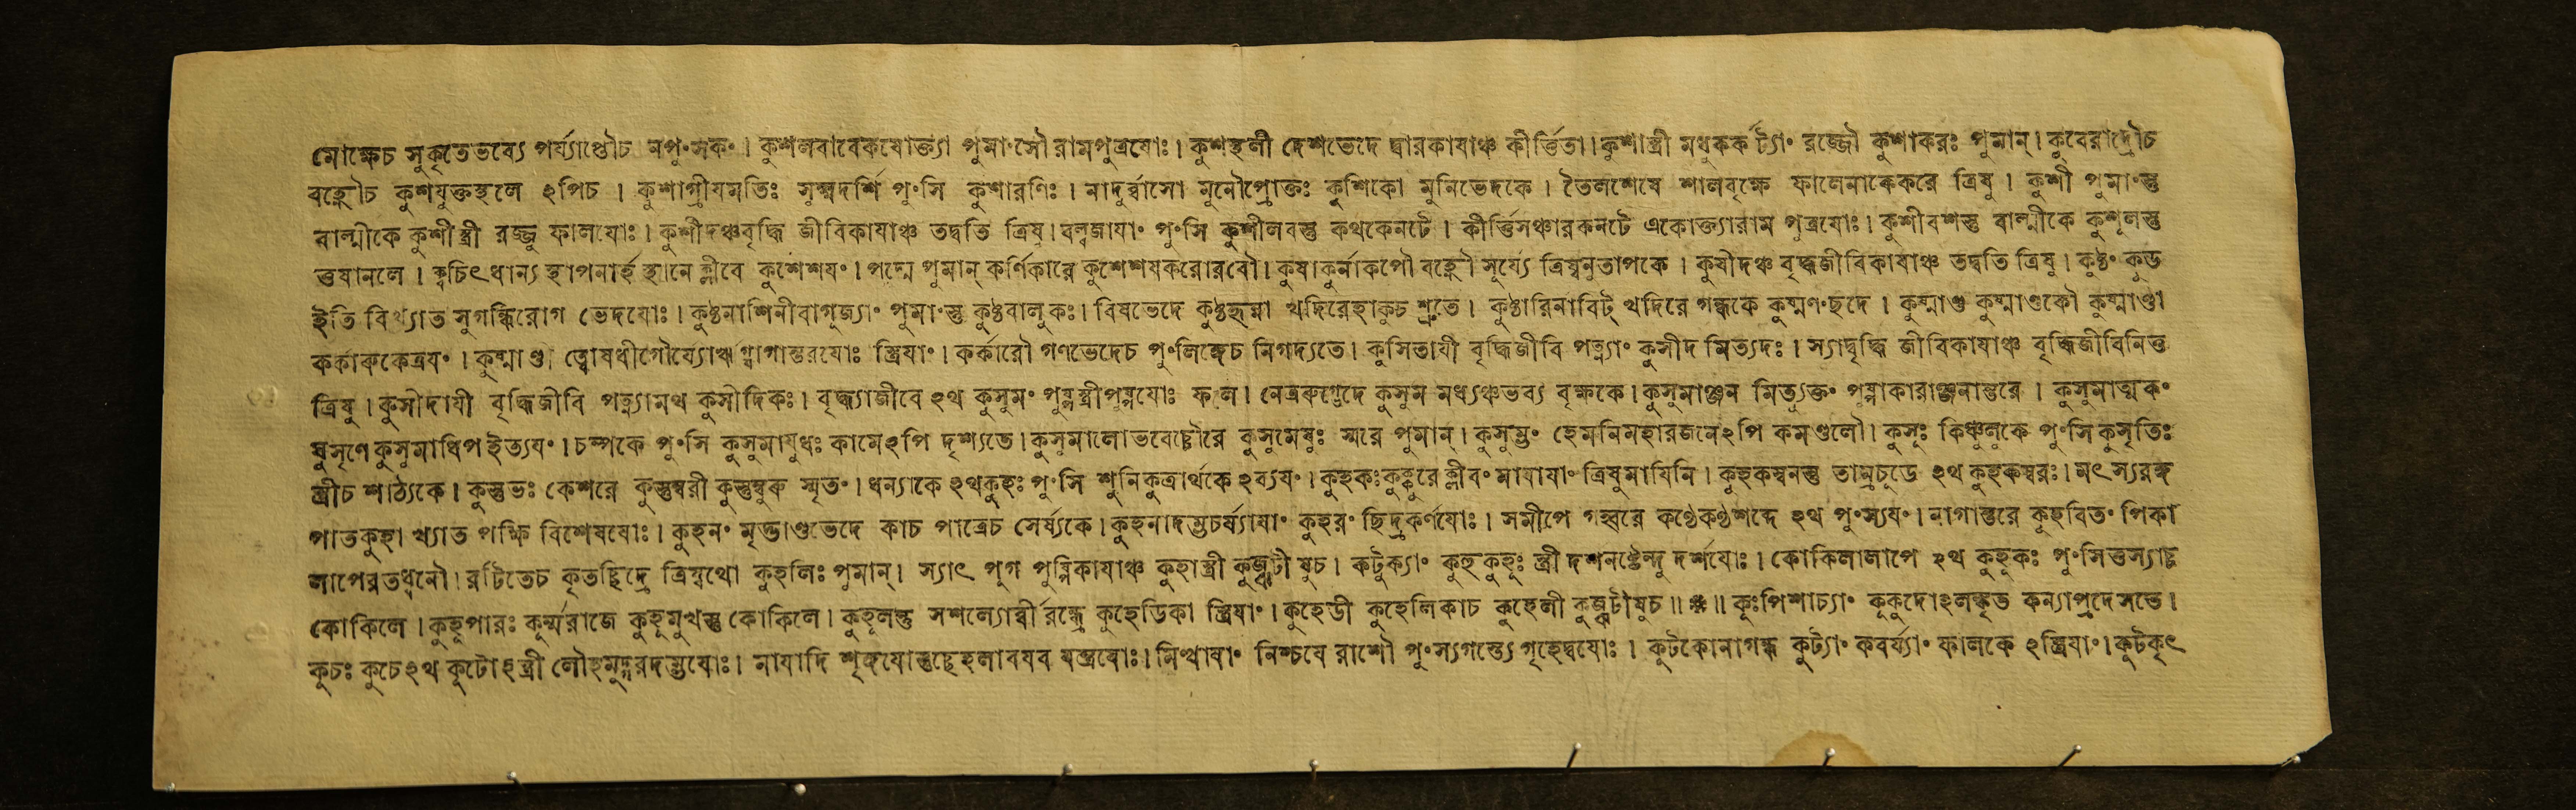 মোক্ষেচ সুকৃতেভব্যে পর্য্যাপ্তৌচ নপুং সকং । কুশলবাবেকযোক্ত্যা পুমাংসৌ রামপুত্রযোঃ । কুশস্থলী দেশভেদে দ্বারকাযাঞ্চ কীর্ত্তিতা । কুশাস্ত্রী মধুকর্কট্যাং রজ্জৌ কুশাকরঃ পুমান্ । কুবেরাদ্রৌচ
বহ্নৌচ কুশযুক্তস্থলে ২পিচ । কুশাগ্রীযমতিঃ সূক্ষ্মদর্শি পুংসি কুশারণিঃ । নাদুর্ব্বাসো মুনৌপ্রোক্তঃ কুশিকো মুনিভেদকে । তৈলশেষে শালবৃক্ষে ফালেনাকেকরে ত্রিষু । কুশী পুমাংস্তু
বাল্মীকে কুশীস্ত্রী রজ্জু ফালযোঃ । কুশীদঞ্চবৃদ্ধি জীবিকাযাঞ্চ তদ্বতি ত্রিষু । পুংসি কুশীলবস্তু কথকেনটে । কীর্ত্তিসঞ্চারকনটে একোক্ত্যারাম পুত্রযোঃ । কুশীবশস্তু বাল্মীকে কুশূলস্তু
ত্তষানলে । ক্বচিৎ ধান্য স্থাপনার্হ স্থানে ক্লীবে কুশেশযং । পদ্মে পুমান্ কর্ণিকারে কুশেশযকরোরবৌ । কুষাকুর্নাকপৌ বহ্নৌ সূর্য্যে ত্রিষ্বনুতাপকে । কুষীদঞ্চ বৃদ্ধজীবিকাযাঞ্চ তদ্বতি ত্রিষু । কুষ্ঠং কুড
ইতি বিখ্যাত সুগন্ধিরোগ ভেদযোঃ । কুষ্ঠনাশিনীবাগুজ্যাং পুমাংস্তু কুষ্ঠবালুকঃ । বিষভেদে কুষ্ঠহৃন্না খদিরেহাকুচ শ্রুতে । কুষ্ঠারিনাবিট্ খদিরে গন্ধকে কুষ্মণংছদে । কুষ্মাণ্ড কুষ্মাণ্ডকৌ কুষ্মাণ্ডা
কর্কারুকেত্রযং । কুষ্মাণ্ডা ত্বোষধীগৌর্য্যোঋ স্ত্রিযাং । কর্কারৌ গণভেদেচ পুংলিঙ্গেচ নিগদ্যতে । কুসিতাযী বৃদ্ধিজীবি পত্ন্যাং কুসীদ মিত্যদঃ । স্যাদ্বৃদ্ধি জীবিকাযাঞ্চ বৃদ্ধিজীবিনিত্ত
ত্রিষু । কুসীদাযী বৃদ্ধিজীবি পত্ন্যামথ কুসীদিকঃ । বৃদ্ধ্যাজীবে ২থ কুসুমং পুষ্পস্ত্রীপুষ্পযোঃ ফলে । নেত্ররুগ্ভেদে কুসুম মধ্যঞ্চভব্য বৃক্ষকে । কুসুমাঞ্জন মিত্যুক্তং পুষ্পাকারাঞ্জনান্তরে । কুসুমাত্মকং
ঘুসৃণে কুসুমাধিপ ইত্যযং । চম্পকে পুংসি কুসুমাযুধঃ কামে২পি দৃশ্যতে । কুসুমালোভবেচ্চৌরে কুসুমেষুঃ স্মরে পুমান্ । কুসুম্ভং হেমনিমহারজনে২পি কমণ্ডলৌ । কুসূঃ কিঞ্চুলুকে পুংসি কুসৃতিঃ
স্ত্রীচ শাঠ্যকে । কুস্তুভঃ কেশরে কুস্তুম্বরী কুস্তুম্বুরু স্মৃতং । ধন্যাকে ২থকুহঃ পুংসি শুনিকুত্রার্থকে ২ব্যযং । কুহকঃকুক্কুরে ক্লীবং মাযাযাং ত্রিষুমাযিনি । কুহকস্বনস্তু তাম্রচূডে ২থ কুহকস্বরঃ । মৎস্যরঙ্গ
পাতকুহা খ্যাত পক্ষি বিশেষযোঃ । কুহনং মৃদ্ভাণ্ডভেদে কাচ পাত্রেচ সের্ষ্যকে । কুহনাদম্ভচর্য্যাযাং কুহরং ছিদ্রকর্ণযোঃ । সমীপে গহ্বরে কণ্ঠেকণ্ঠশব্দে ২থ পুংস্যযং । নাগান্তরে কুহরিতং পিকা
লাপেরতধ্বনৌ । রটিতেচ কৃতচ্ছিদ্রে ত্রিষ্বথো কুহলিঃ পুমান্ । স্যাৎ পূগ পুষ্পিকাযাঞ্চ কুহাস্ত্রী কুজ্ঝটী ষুচ । কটুক্যাং কুহু কুহূঃ স্ত্রী দশনষ্টেন্দু দর্শযোঃ । কোকিলালাপে ২থ কুহূকঃ পুংসিত্তস্যাচ্চ
কোকিলে । কুহূপারঃ কূর্ম্মরাজে কুহূমুখস্তু কোকিলে । কুহূলন্তু সশল্যোর্ব্বী রন্ধ্রে কুহেডিকা স্ত্রিযাং । কুহেডী কুহেলিকাচ কুহেলী কুজ্ঝটীষুচ ॥ ॥ কূঃপিশাচ্যাং কূকুদো২লঙ্কৃত কন্যাপ্রদেসত্তে ।
কূচঃ কুচে২থ কূটো২স্ত্রী লৌহমুদ্গরদম্ভযোঃ । মাযাদি শৃঙ্গযোস্তুচ্ছেহলাবযব যন্ত্রযোঃ । মিথ্যাযাং নিশ্চযে রাশৌ পুংস্যগস্ত্যে গৃহেদ্বযোঃ । কূটকোনাগন্ধ কুট্যাং কবর্য্যাং ফালকে ২স্ত্রিযাং । কূটকৃৎ